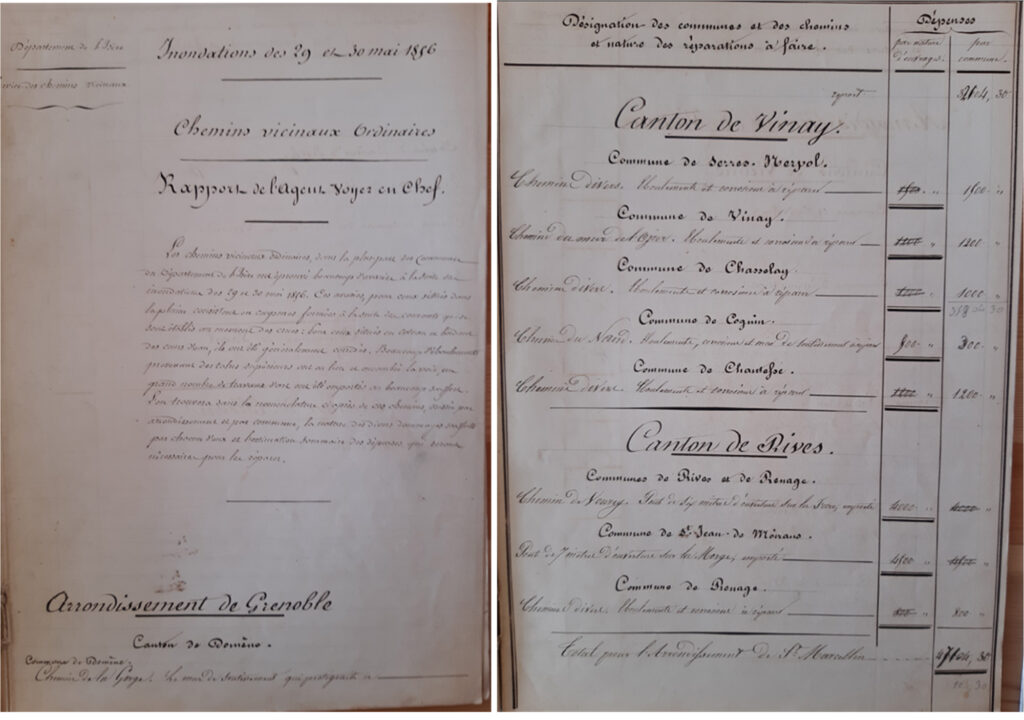 Département de l'Isère
Service des chemins vicinaux
Inondations des 29 et 30 mai 1856
Chemins vicinaux Ordinaires
Rapport de l'Agent Voyer en Chef.
Les chemins vicinaux ordinaires, dans la plupart des Communes
du Département de l'Isère ont éprouvé beaucoup d'avaries à la suite des
inondations des 29 et 30 mai 1856. Ces avaries, pour ceux situés dans
la plaine consistent en coupures formées à la suite des courants qui se
sont établis au moment des crues: pour ceux situés en coteau ou bordant
des cours d'eau, ils ont été généralement corrodés. Beaucoup d'éboulements
provenant des talus supérieurs ont eu lieu et encombré la voie, un
grand nombre de travaux d'art ont été emportés ou beaucoup souffert.
L'on trouvera dans la nomenclature ci-après de ces chemins, par
arrondissement et par commune, la nature des divers dommages soufferts
par chacun d'eux et l'estimation sommaire des dépenses qui seront
nécessaires pour les réparer.
Arrondissement de Grenoble
Canton de Domêne.
Commune de Domêne.
Chemin de la Gorge. Le mur de soutènement qui protégeait
Désignation des communes et des chemins
et nature des réparations à faire.
Dépenses
par nature d'ouvrages.
par commune.
report
30
Canton de Vinay.
Commune de Serres-Nerpol.
Chemins divers. Eboulements et corrosions à réparer 1500 " 1500 "
Commune de Vinay.
Chemin Eboulements et corrosions à réparer "
Commune de Chasselay
Chemins divers. Eboulements et corrosions à réparer 1000 "
Commune de Cognin.
Chemin du Nand. Eboulements, corrosions et mur de soutènement à réparer 300 " 300 "
Commune de Chantesse.
Chemins divers. Eboulements et corrosions à réparer 1200 "
Canton de Rives.
Communes de Rives et de Renage.
Chemin de Vourey. Pont de six mètres d'ouverture sur la Fure, emporté 4000 " 4000 "
Commune de St Jean de Moirans.
Pont de 7 mètres d'ouverture sur la Morge, emporté 4500 " 4500 "
Commune de Renage.
Chemins divers. Eboulements et corrosions à réparer 800 " 800 "
Total pour l'Arrondissement de St Marcellin 30